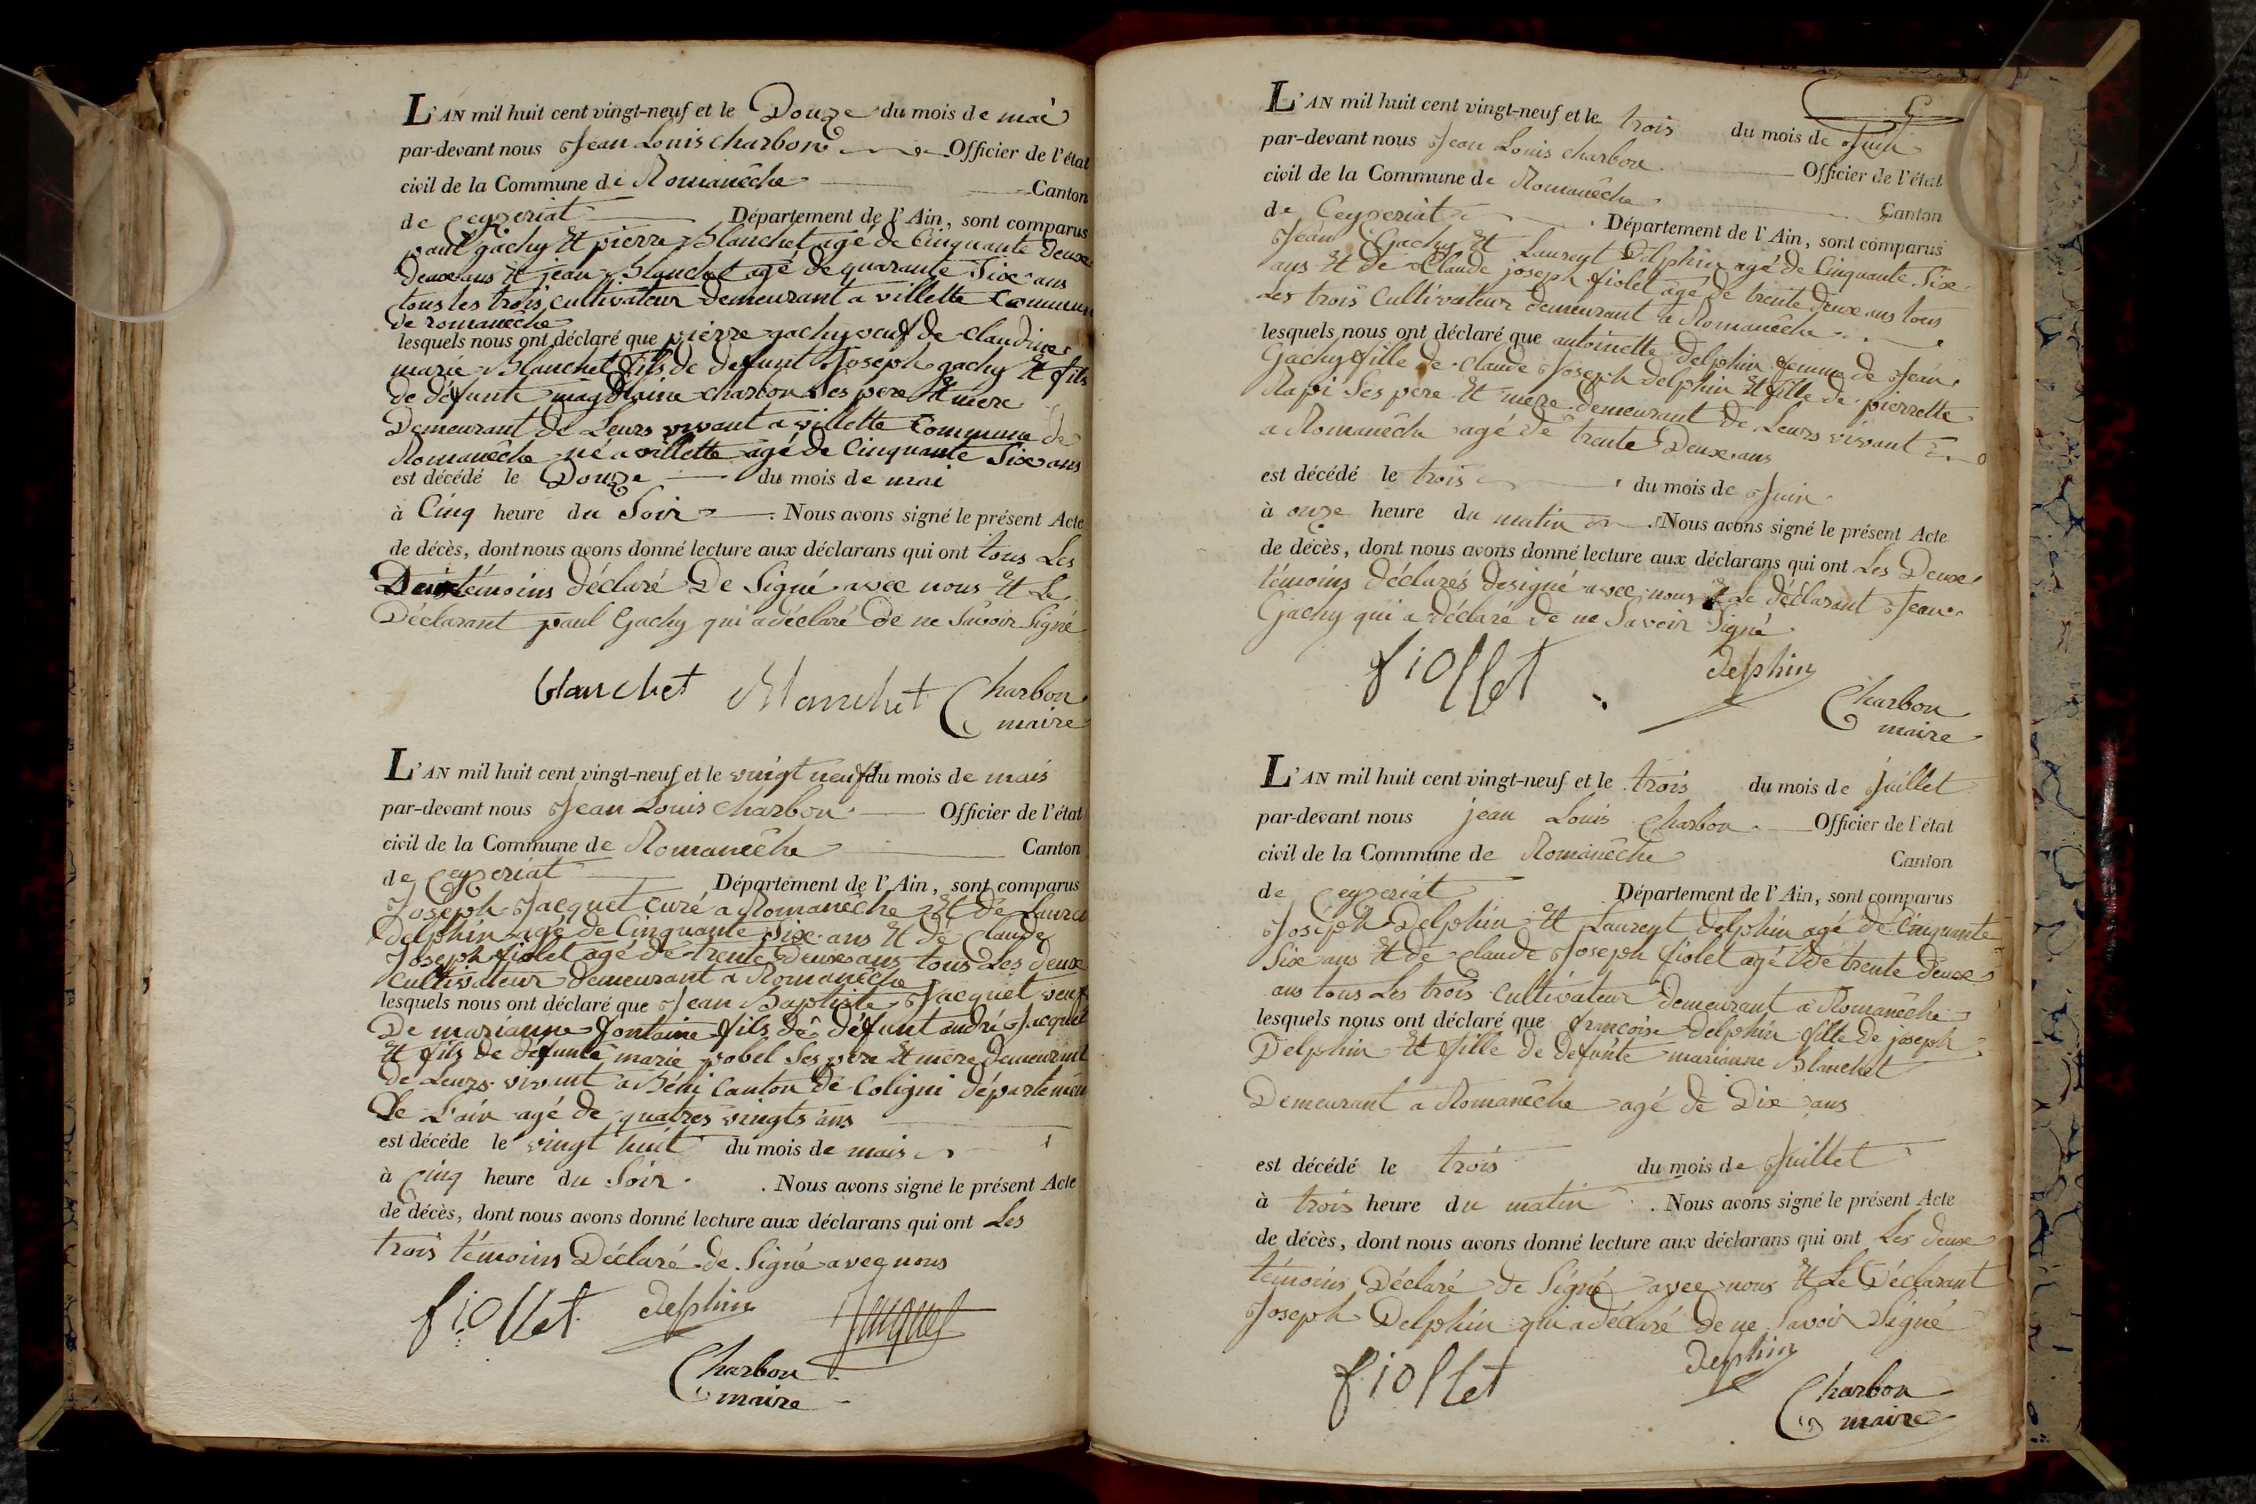 L'AN mil huit cent vingt-neuf et le Douze du mois de mai
par-devant nous Jean Louis charbon Officier de l'état
civil de la Commune de Romanêche Canton
de Ceyzeriat Département de l'Ain, sont comparus
paul gachy Et pierre Blanchet agé de Cinquante deux
Deux ans Et jean Blanchet agé de quarante Six ans
tous les trois Cultivateur demeurant a villette Commun
de romanêche
lesquels nous ont déclaré que pierre gachy veuf de Claudine
marie Blanchet fils de defunt Joseph gachy Et fils
de défunte magdlaine charbon Ses pere Et mere
Demeurant de Leurs vivant a villette Commune de
Romanêche né a villette agé de Cinquante Six ans
est décédé le Douze du mois de mai
à Cinq heure du Soir . Nous avons signé le présent Acte
de décès, dont nous avons donné lecture aux déclarans qui ont tous Les
Deux témoins déclaré De Signé avec nous Et Le
Déclarant paul Gachy qui a déclaré De ne Savoir Signé
blanchet Blanchet Charbon
maire
L'AN mil huit cent vingt-neuf et le vingt neuf du mois de mais
par-devant nous Jean Louis charbon Officier de l'état
civil de la Commune de Romanêche Canton
de Ceyzeriat Département de l'Ain, sont comparus
Joseph Jacquet curé a Romanêche Et de Laurent
Delphin agé de Cinquante Six ans Et de Claude
Joseph fiolet agé de trente Deux ans tous Les deux
Cultivateur demeurant a Romanêche
lesquels nous ont déclaré que Jean Baptiste Jacquet veuf
De marianne fontaine fils de défunt andré Jacquet
Et fils de défunte marie Ses pere Et mere Demeurant
de Leurs vivant a Béni Canton de Coligni département
De Lain agé de quatres vingts ans
est décédé le vingt huit du mois de mais
à Cinq heure du Soir . Nous avons signé le présent Acte
de décès, dont nous avons donné lecture aux déclarans qui ont Les
trois témoins Déclaré de Signé avec nous
fiollet delphin Jacquet
Charbon
maire
L'AN mil huit cent vingt-neuf et le trois du mois de Juin
par-devant nous Jean Louis charbon Officier de l'état
civil de la Commune de Romanêche Canton
de Ceyzeriat Département de l'Ain, sont comparus
Jean Gachy Et Laurent Delphin agé de Cinquante Six
ans Et de Claude joseph fiolet agé de trente deux ans tous
Les trois Cultivateur demeurant a Romanêche
lesquels nous ont déclaré que antoinette Delphin femme de Jean
Gachy fille de Claude Joseph Delphin Et fille de pierrette
Rapi Ses pere Et mere demeurant de Leurs vivant
a Romanêche agé de trente Deux ans
est décédé le trois du mois de Juin
à onze heure du matin . Nous avons signé le présent Acte
de décès, dont nous avons donné lecture aux déclarans qui ont Les Deux
témoins déclarés de signé avec nous Et Le déclarant Jean
Gachy qui a déclaré De ne Savoir Signé
fiollet delphin
Charbon
maire
L'AN mil huit cent vingt-neuf et le trois du mois de Juillet
par-devant nous jean Louis Charbon Officier de l'état
civil de la Commune de Romanêche Canton
de Ceyzeriat Département de l'Ain, sont comparus
Joseph Delphin Et Laurent Delphin agé de Cinquante
Six ans Et de Claude Joseph fiolet agé De trente deux
ans tous Les trois Cultivateur demeurant a Romanêche
lesquels nous ont déclaré que françoise Delphin fille de joseph
Delphin Et fille de defunte marianne Blanchet
Demeurant a Romanêche agé de Dix ans
est décédé le trois du mois de Juillet
à trois heure du matin . Nous avons signé le présent Acte
de décès, dont nous avons donné lecture aux déclarans qui ont Les deux
témoins Déclaré de Signé avec nous Et Le Déclarant
Joseph Delphin qui a déclaré de ne Savoir Signé
fiollet delphin
Charbon
maire